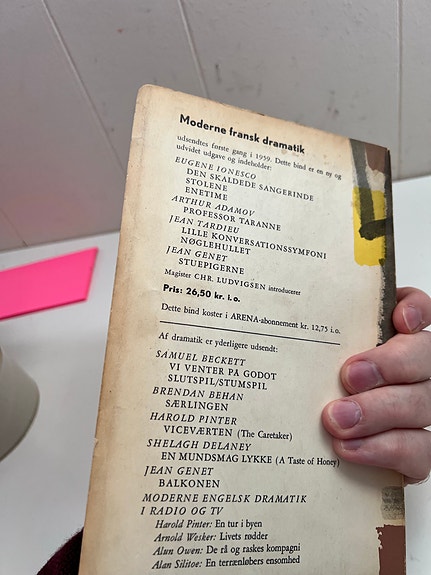 Moderne fransk dramatik
udsendtes første gang i 1959. Dette bind er en ny og
udvidet udgave og indeholder:
EUGENE IONESCO
DEN SKALDEDE SANGERINDE
STOLENE
ENETIME
ARTHUR ADAMOV
PROFESSOR TARANNE
JEAN TARDIEU
LILLE KONVERSATIONSSYMFONI
NØGLEHULLET
JEAN GENET
STUEPIGERNE
Magister CHR. LUDVIGSEN introducerer
Pris: 26,50 kr. i.o.
Dette bind koster i ARENA-abonnement kr. 12,75 i.o.
Af dramatik er yderligere udsendt:
SAMUEL BECKETT
VI VENTER PÅ GODOT
SLUTSPIL/STUMSPIL
BRENDAN BEHAN
SÆRLINGEN
HAROLD PINTER
VICEVÆRTEN (The Caretaker)
SHELAGH DELANEY
EN MUNDSMAG LYKKE (A Taste of Honey)
JEAN GENET
BALKONEN
MODERNE ENGELSK DRAMATIK
I RADIO OG TV
Harold Pinter: En tur i byen
Arnold Wesker: Livets rødder
Alun Owen: De rå og raskes kompagni
Alan Silitoe: En terrænløbers ensomhed